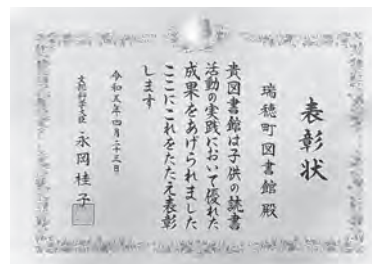 表彰状
瑞穂町図書館殿
貴図書館は子供の読書
活動の実践において優れた
成果をあげられました
ここにこれをたたえ表彰
します
令和五年四月二十三日
文部科学大臣 永岡桂子